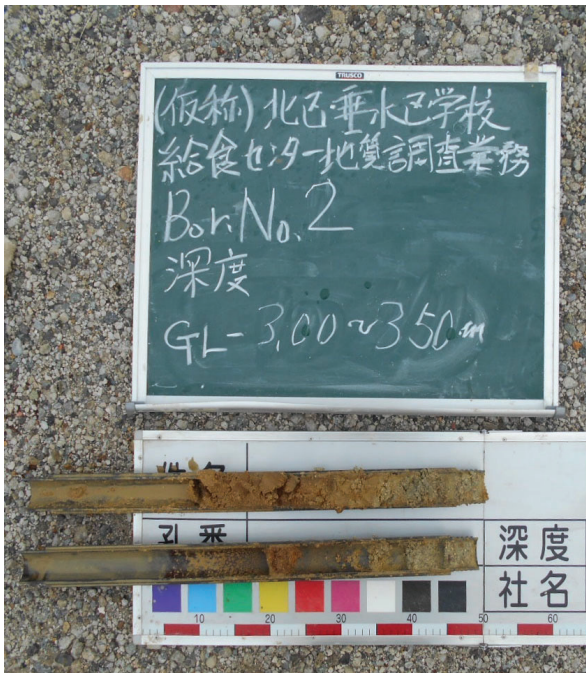 TRUSCO
(仮称)北区・垂水区学校
給食センター地質調査業務
Bor.No.2
深度
GL-3.00~3.50m
孔番
深度
社名
10 20 30 40 50 60